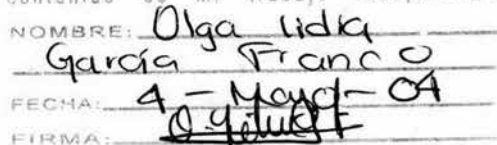 NOMBRE: Olga lidia
García Franco
FECHA: 4 - Mayo - 04
FIRMA: